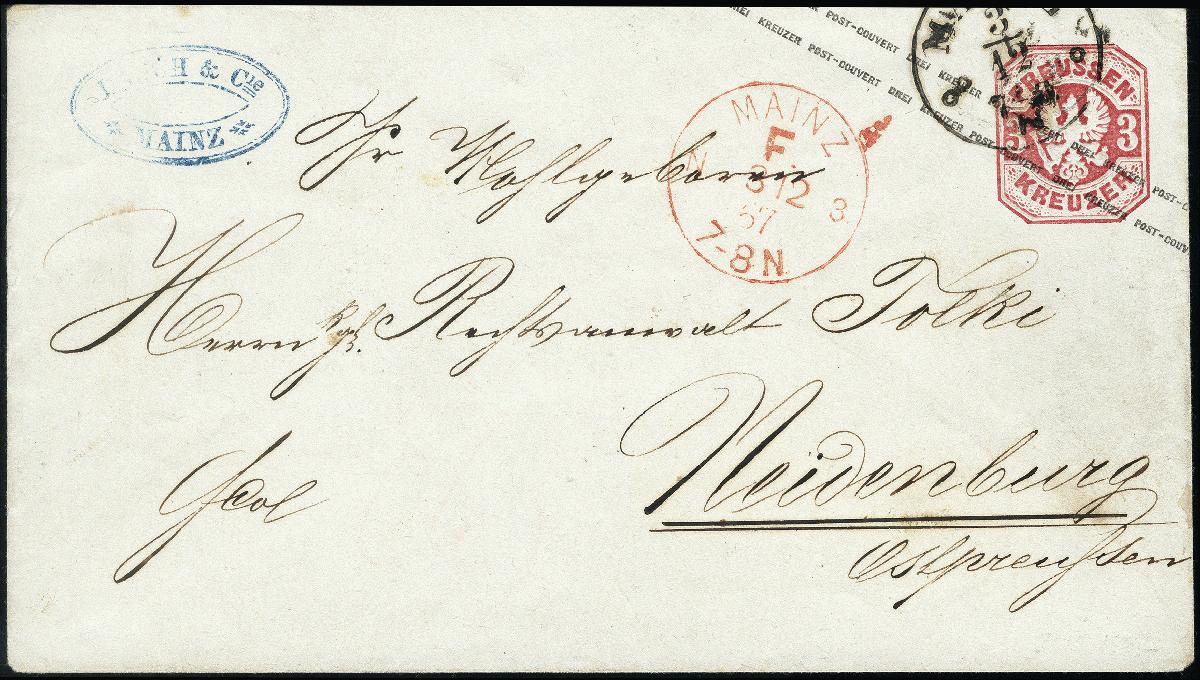 & Cie
MAINZ
MAINZ
F
3 12
67
N 3
7-8N
DREI KREUZER POST-COUVERT DREI KREUZER
DREI KREUZER POST-COUVERT DREI KREUZER POST-COUVERT DREI KREUZER POST-COUVERT
PREUSSEN
3 3
KREUZER
Sr Wohlgeboren
Herrn kgl. Rechtsanwalt Tolki
Neidenburg
Ostpreußen